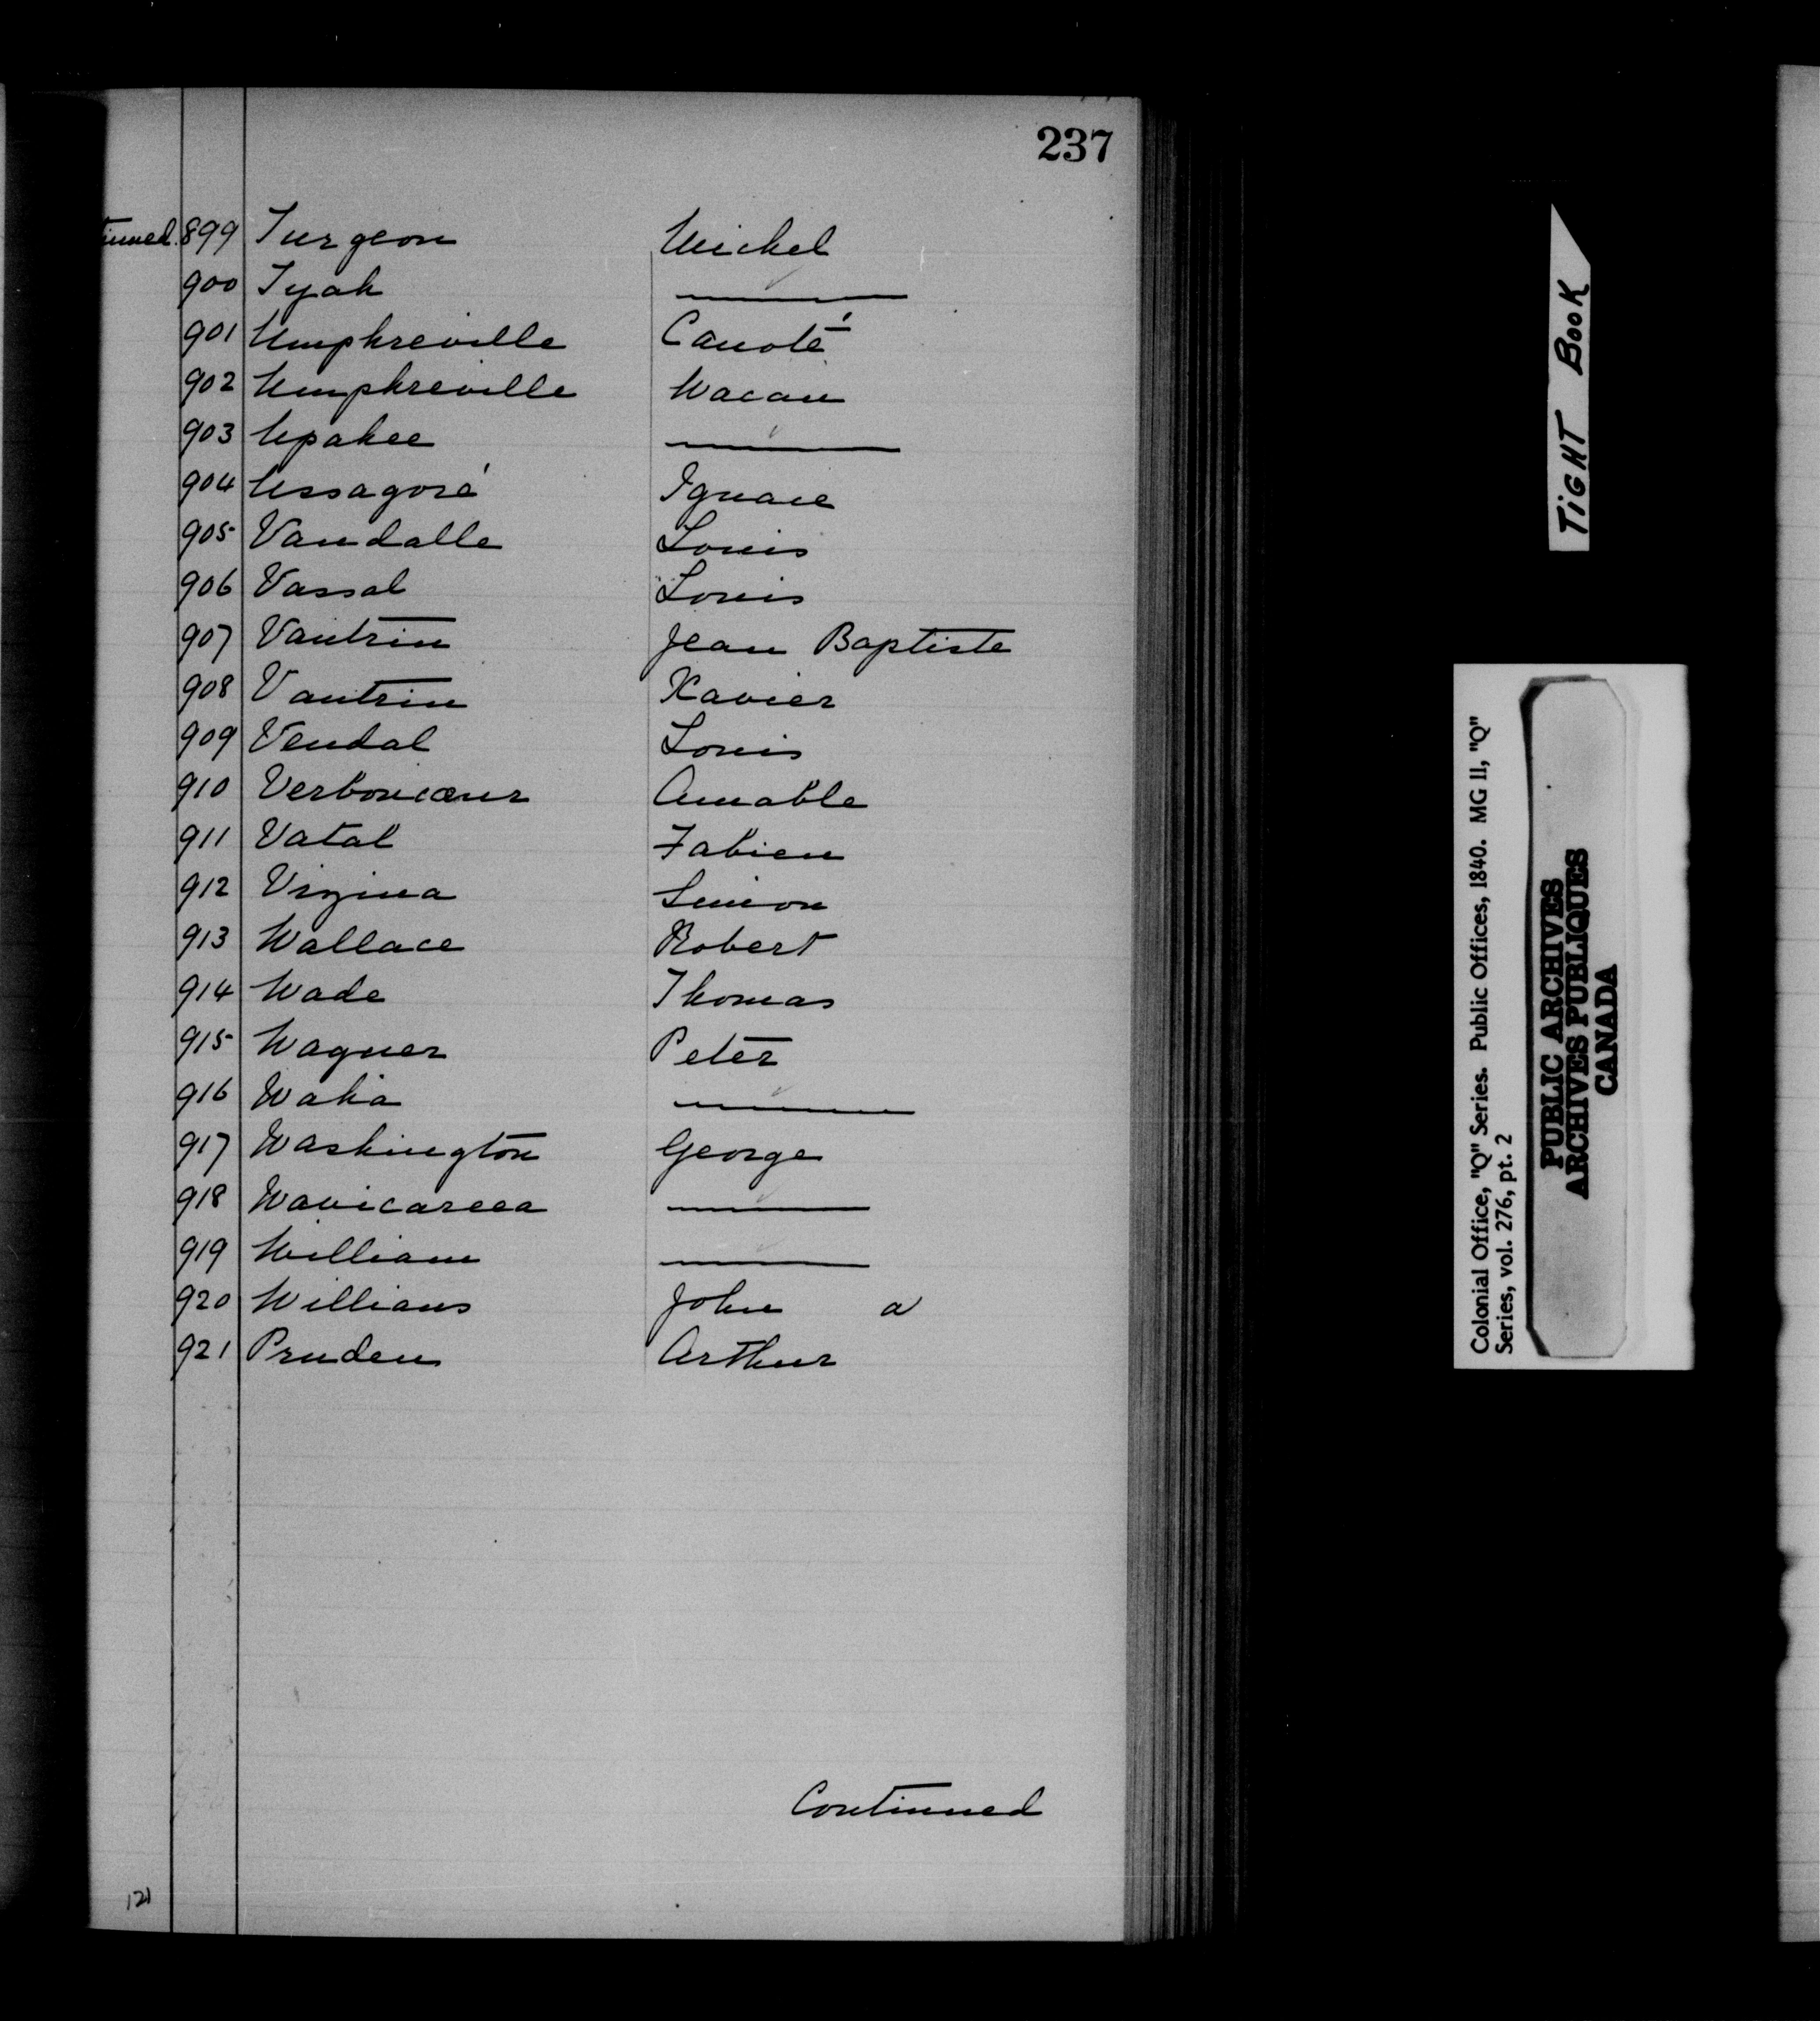 237
tinued. 899 Turgeon Michel
900 Tyah ———
901 Umphreville Canoté
902 Umphreville Wacan
903 Upahee ———
904 Ussagoré Ignace
905 Vandalle Louis
906 Vassal Louis
907 Vautrin Jean Baptiste
908 Vautrin Xavier
909 Vendal Louis
910 Verboncœur Amable
911 Vatal Fabien
912 Vizina Simon
913 Wallace Robert
914 Wade Thomas
915 Wagner Peter
916 Waha ———
917 Washington George
918 Wavicareea ———
919 William ———
920 Williams John a
921 Pruden Arthur
Continued
121
TIGHT BOOK
Colonial Office, "Q" Series. Public Offices, 1840. MG II, "Q"
Series, vol. 276, pt. 2
PUBLIC ARCHIVES
ARCHIVES PUBLIQUES
CANADA